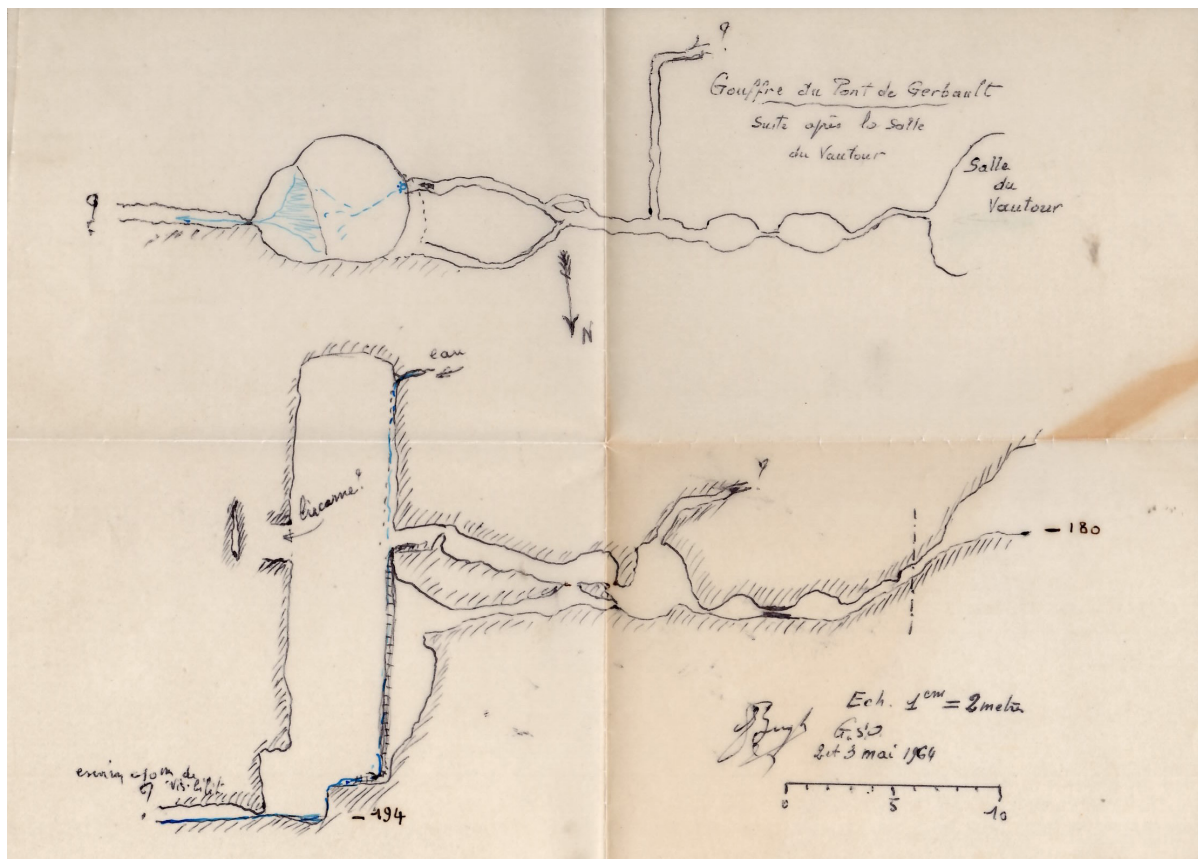 ?
Gouffre du Pont de Gerbault
Suite après la Salle
du Vautour
Salle
du
Vautour
?
N
eau
lucarne?
?
- 180
Ech. 1cm = 2 metres
G.S.O.
2 et 3 mai 1964
0 5 10
environ 10m de
visibilité
?
- 194